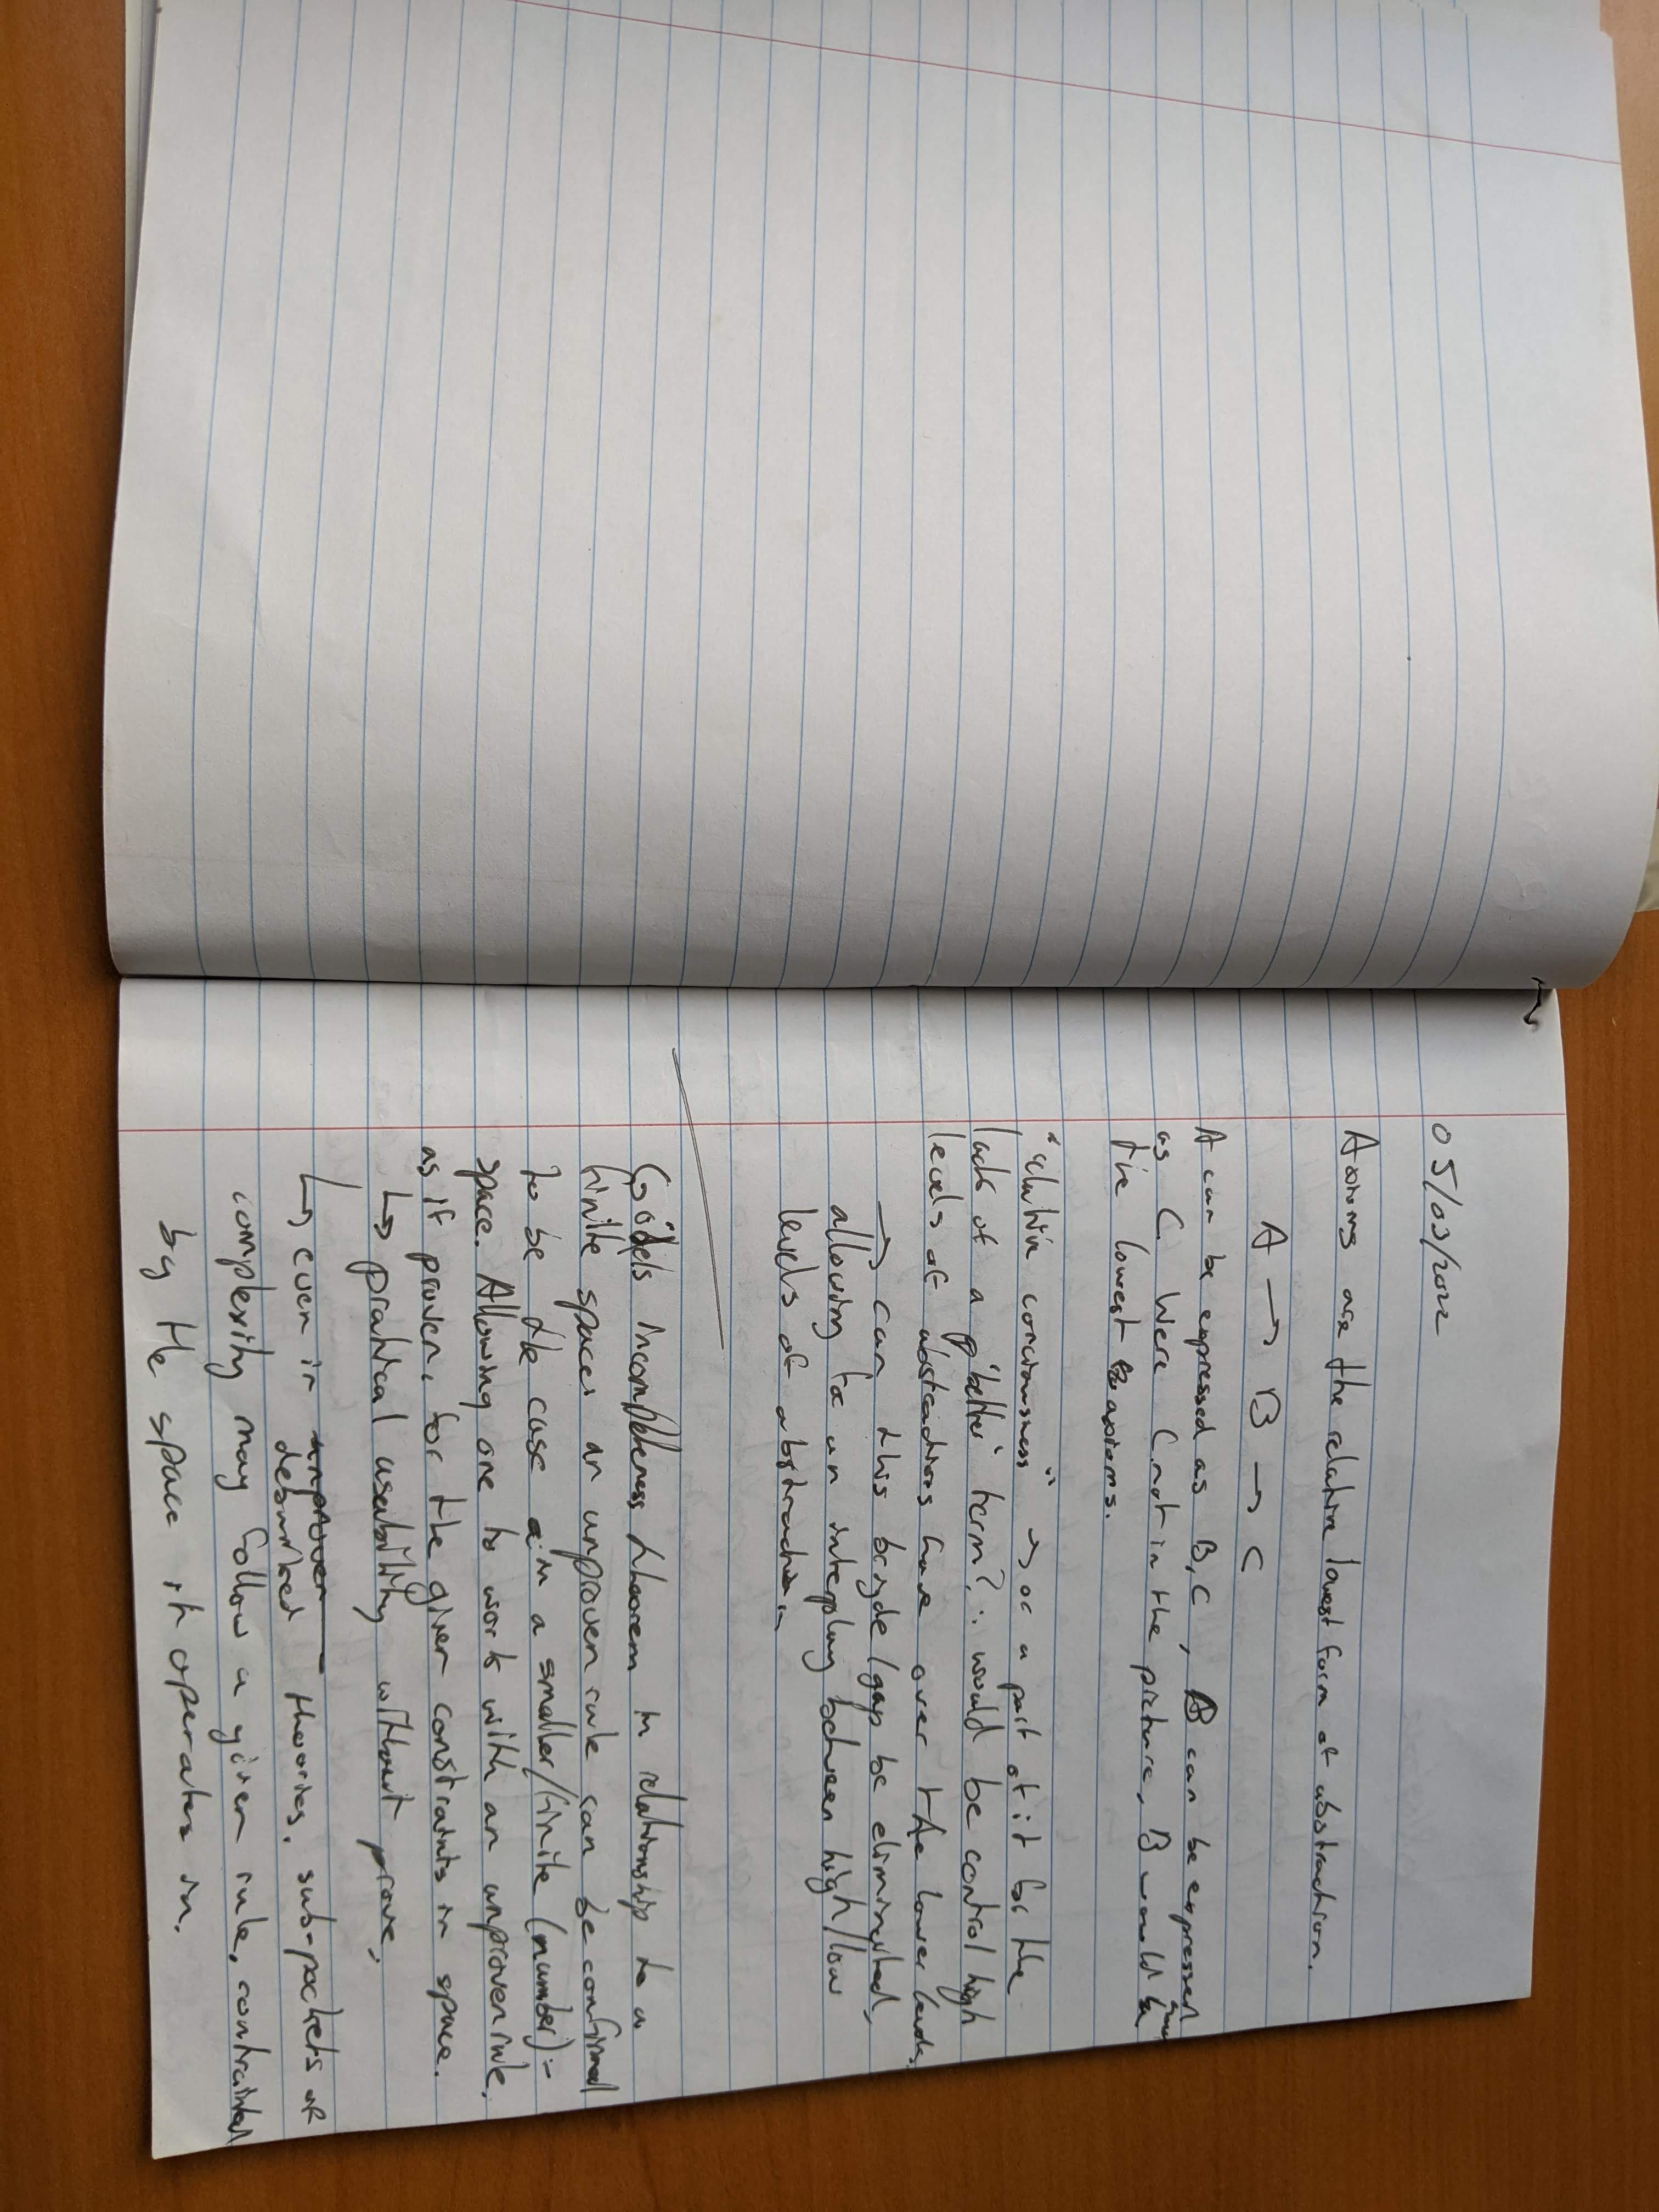 05/03/2022
Axioms are the relative lowest form of abstraction.
A → B → C
A can be expressed as B, C, B can be expressed
as C. Were C not in the picture, B would be
the lowest axioms.
"relative conciousness" → or a part of it for the
lack of a 'better' term?: would be control high
levels of abstractions have over the lower levels.
→ can this bridge/gap be eliminated,
allowing for an interplay between high/low
levels of abstraction
Gödels incompleteness theorem in relationship to a
finite space: an unproven rule can be confirmed
to be the case in a smaller/finite (number)-
space. Allowing one to work with an unproven rule,
as if proven, for the given constraints in space.
↳ pratical usability without prove,
↳ even in unproven
debunked theories. sub-pockets of
complexity may follow a given rule, contrainted
by the space it operates in.